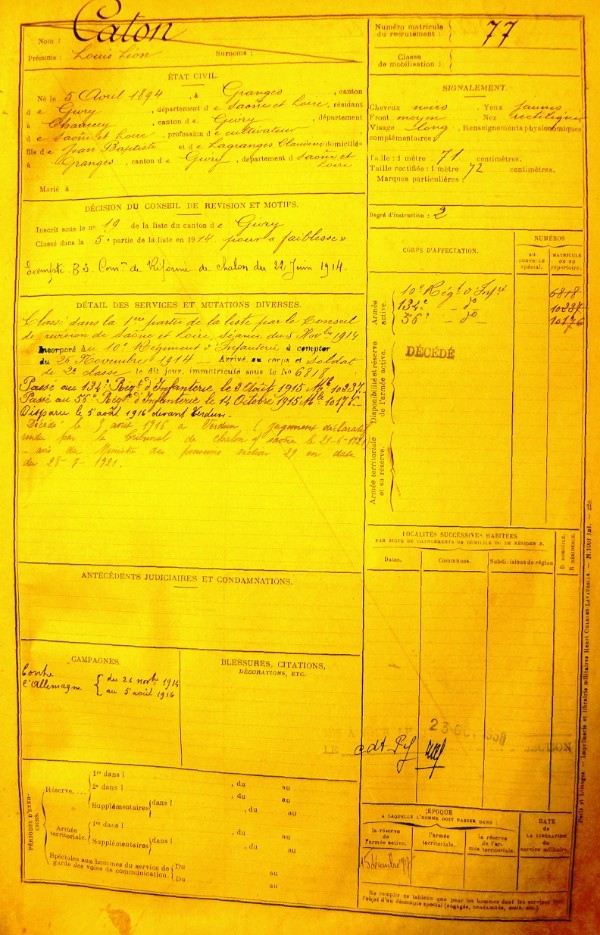 Nom : Caton
Prénoms : Louis Léon Surnoms :
Numéro matricule du recrutement : 77
Classe de mobilisation :
ÉTAT CIVIL.
Né le 5 Avril 1894, à Granges, canton
de Givry, département de Saône et Loire, résidant
à Charrecey, canton de Givry, département
de Saône et Loire, profession de cultivateur
fils de Jean Baptiste et de Lagranges domiciliés
à Granges, canton de Givry, département de Saône et Loire
Marié à
SIGNALEMENT.
Cheveux noirs Yeux jaunes
Front moyen Nez rectiligne
Visage long Renseignements physionomiques
complémentaires
Taille : 1 mètre 71 centimètres.
Taille rectifiée : 1 mètre 72 centimètres.
Marques particulières :
Degré d'instruction : 2
DÉCISION DU CONSEIL DE REVISION ET MOTIFS.
Inscrit sous le n° 19 de la liste du canton de Givry
Classé dans la 5e partie de la liste en 1914 pour « faiblesse »
Exempté B.S. Comon de Réforme de Chalon du 22 Juin 1914.
DÉTAIL DES SERVICES ET MUTATIONS DIVERSES.
Classé dans la 1ère partie de la liste par le Conseil
de révision de Saône et Loire, séance du 5 Novbre 1914
Incorporé au 10e Régiment d'Infanterie à compter
du Novembre 1914 - Arrivé au corps et Soldat
de 2e classe le dit jour, immatriculé sous le No 6818
Passé au 134e Régt d'Infanterie le 2 Août 1915 Mle 10237.
Passé au 55e Régt d'Infanterie le 14 Octobre 1915 Mle 10176.
Disparu le 5 août 1916 devant Verdun.
Décédé le 5 août 1916 à Verdun (jugement déclaratif
rendu par le tribunal de Chalon s/ Saône le
avis du Ministre des pensions section 29 en date
du 1921.
CORPS D'AFFECTATION.
NUMÉROS
AU CONTRÔLE spécial.
MATRICULE OU AU répertoire.
Armée active.
10e Régt d'Infie 6818
134e - do 10237
55e - do 10176
Disponibilité et réserve de l'armée active.
DÉCÉDÉ
Armée territoriale et sa réserve.
LOCALITÉS SUCCESSIVES HABITÉES
PAR SUITE DE CHANGEMENTS DE DOMICILE OU DE RÉSIDENCE.
Dates. Communes. Subdivisions de région D. DOMICILE. R. RÉSIDENCE.
ANTÉCÉDENTS JUDICIAIRES ET CONDAMNATIONS.
CAMPAGNES.
Contre l'Allemagne { du 21 novbre 1914
au 5 août 1916
BLESSURES, CITATIONS,
DÉCORATIONS, ETC.
SECTION
PÉRIODES D'EXERCICES.
Réserve.....
1re dans l , du au
2e dans l , du au
Supplémentaires { dans l , du au
, du au
Armée territoriale.
1re dans l , du au
Supplémentaires { dans l , du au
, du au
Spéciales aux hommes du service de garde des voies de communication. { Du au
Du au
ÉPOQUE
À LAQUELLE L'HOMME DOIT PASSER DANS :
la réserve de l'armée active. l'armée territoriale. la réserve de l'armée territoriale.
DATE de LA LIBÉRATION du service militaire.
Ne remplir ce tableau que pour les hommes dont les services font
l'objet d'un décompte spécial (engagés, condamnés, omis, etc.)